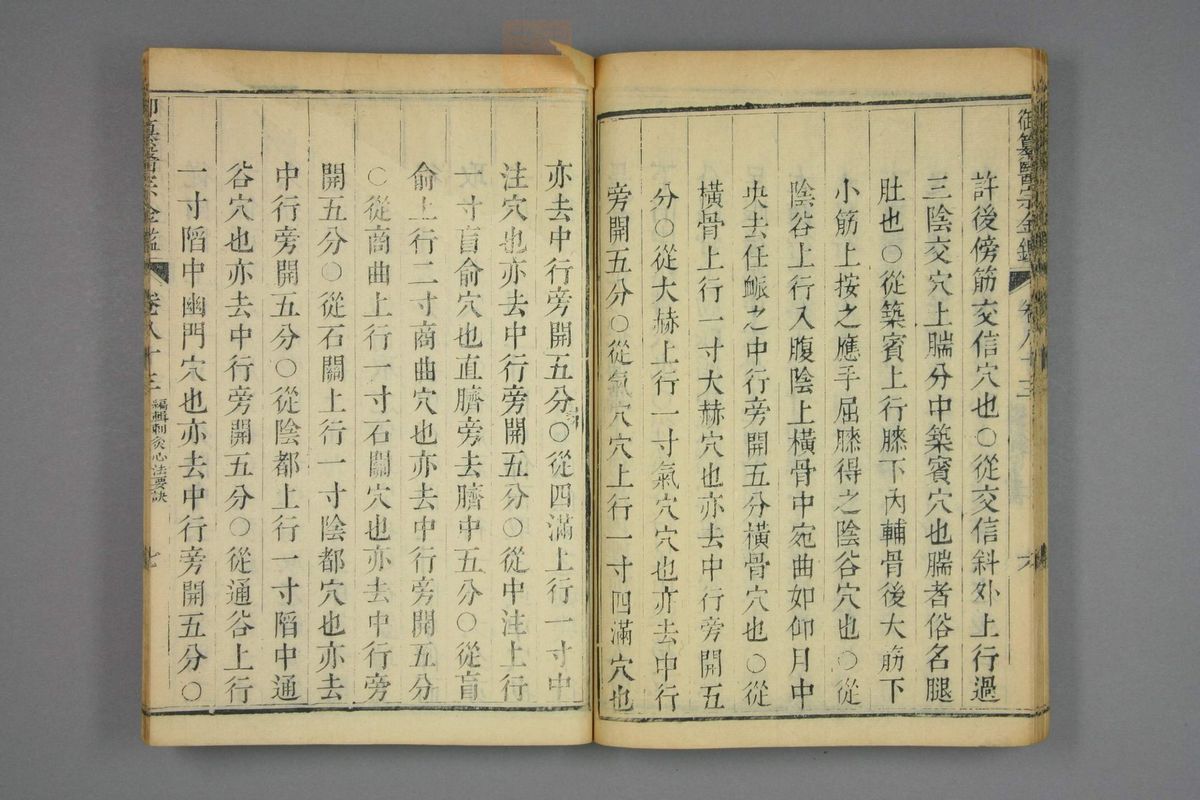 御纂醫宗金鑑
卷八十三
六
許後傍筋交信穴也○從交信斜外上行過
三陰交穴上腨分中築賓穴也腨者俗名腿
肚也○從築賓上行膝下內輔骨後大筋下
小筋上按之應手屈膝得之陰谷穴也○從
陰谷上行入腹陰上橫骨中宛曲如仰月中
央去任脈之中行旁開五分橫骨穴也○從
橫骨上行一寸大赫穴也亦去中行旁開五
分○從大赫上行一寸氣穴穴也亦去中行
旁開五分○從氣穴穴上行一寸四滿穴也
亦去中行旁開五分○從四滿上行一寸中
注穴也亦去中行旁開五分○從中注上行
一寸肓俞穴也直臍旁去臍中五分○從肓
俞上行二寸商曲穴也亦去中行旁開五分
○從商曲上行一寸石關穴也亦去中行旁
開五分○從石關上行一寸陰都穴也亦去
中行旁開五分○從陰都上行一寸陷中通
谷穴也亦去中行旁開五分○從通谷上行
一寸陷中幽門穴也亦去中行旁開五分○
御纂醫宗金鑑
卷八十三
編輯刺灸心法要訣
七